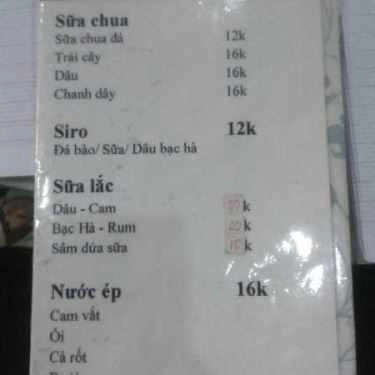 Sữa chua
Sữa chua đá 12k
Trái cây 16k
Dâu 16k
Chanh dây 16k
Siro 12k
Đá bào/ Sữa/ Dâu bạc hà
Sữa lắc
Dâu - Cam k
Bạc Hà - Rum 20k
Sâm dứa sữa k
Nước ép 16k
Cam vắt
Ổi
Cà rốt